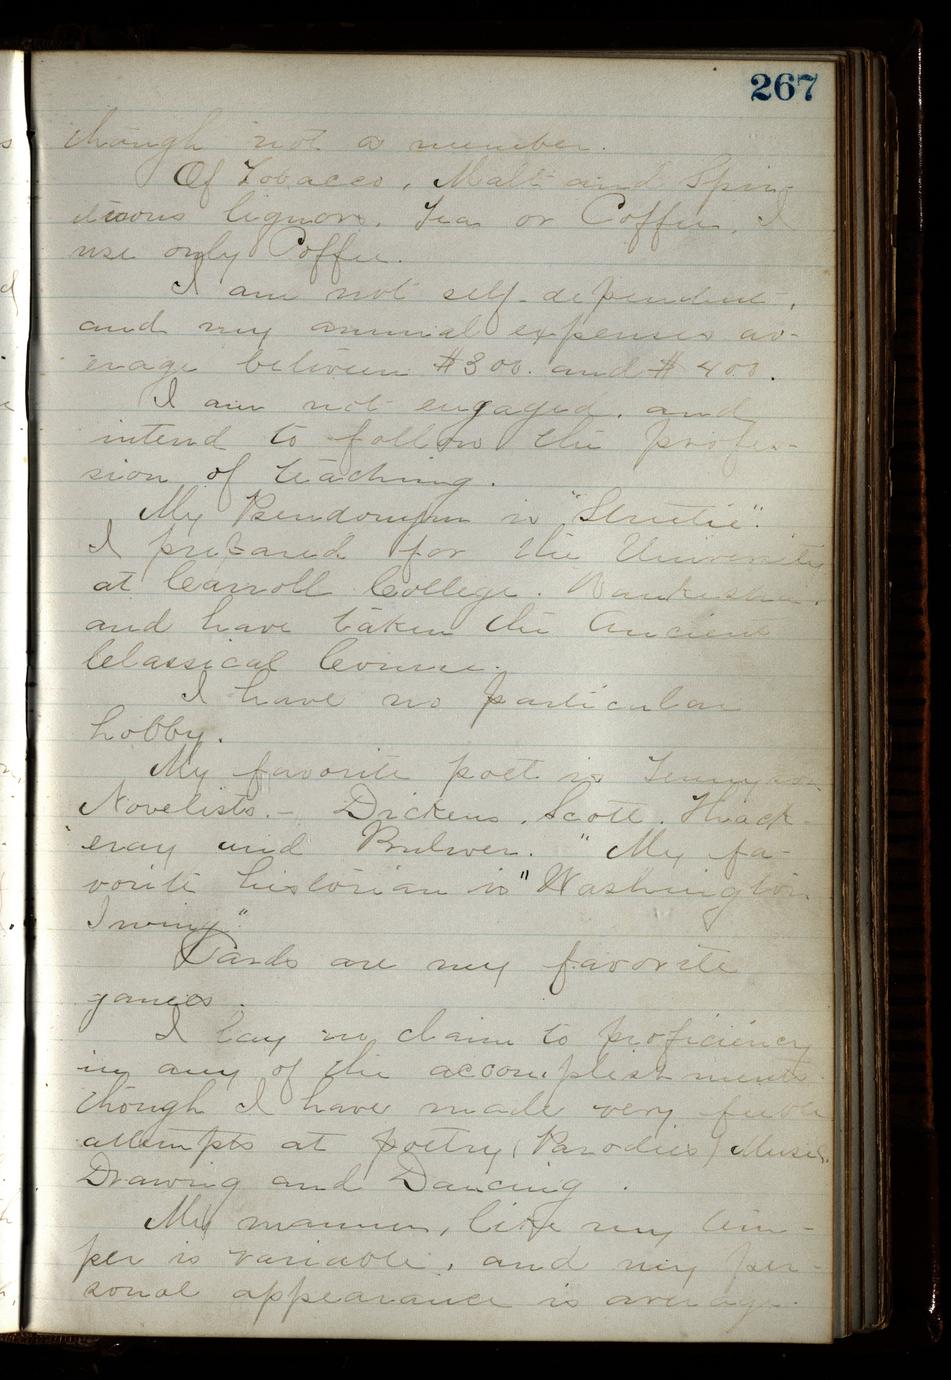 267
though not a member.
Of Tobacco, Malt and Spir-
ituous liquors, Tea or Coffee, I
use only Coffee.
I am not self-dependent,
and my annual expenses av-
erage between $300. and $400.
I am not engaged, and
intend to follow the profes-
sion of teaching.
My Pseudonym is "
I prepared for the University
at Carroll College. Waukesha.
and have taken the Ancient
Classical Course.
I have no particular
hobby.
My favorite poet is Tennyson
Novelists.- Dickens, Scott, Thack-
eray and Bulwer. "My fa-
vorite historian is "Washington
Irving"
Cards are my favorite
games.
I lay no claim to proficiency
in any of the accomplishments
though I have made very feeble
attempts at poetry (Parodies) Music,
Drawing and Dancing.
My manner, like my tem-
per is variable, and my per-
sonal appearance is average.